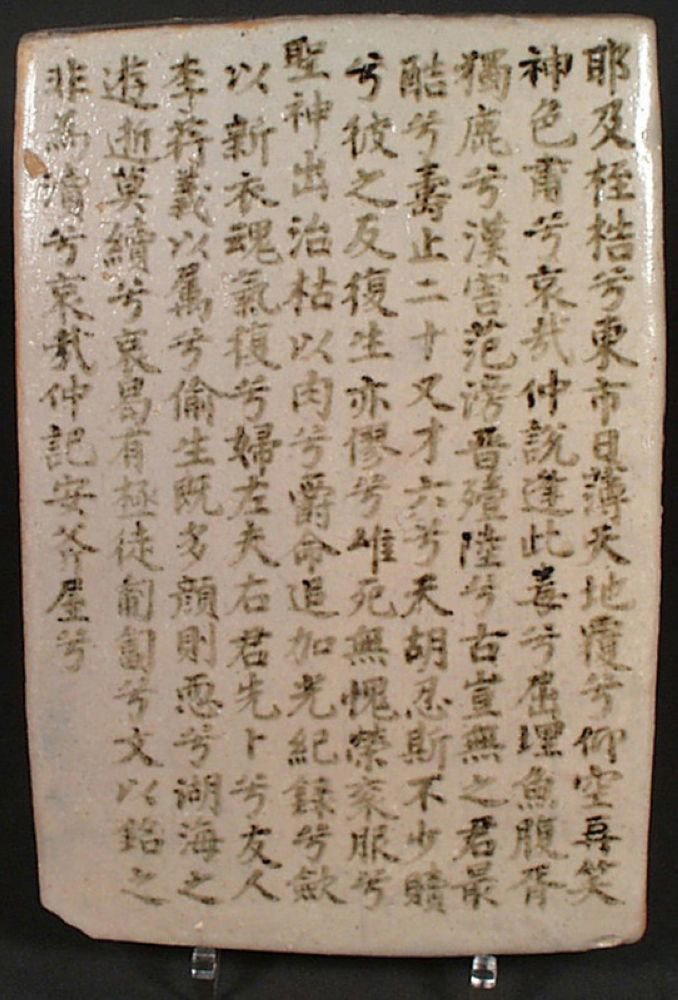 耶及桎梏兮東市日薄天地覆兮仰空再笑
神色甯兮哀哉仲說逢此毒兮屈埋魚腹胥
獨鹿兮漢害范滂晋殪陸兮古豈無之君最
酷兮壽止二十又才六兮天胡忍斯不少贖
兮彼之反復生亦僇兮雄死無愧榮衮服兮
聖神出治枯以肉兮爵命追加光紀錄兮歛
以新衣魂氣復兮婦左夫右君先卜兮友人
李荐義以屬兮偷生既多顔則恧兮湖海之
遊逝莫續兮哀曷有極徒匍匐兮文以銘之
非為瀆兮哀哉仲記安斧屋兮